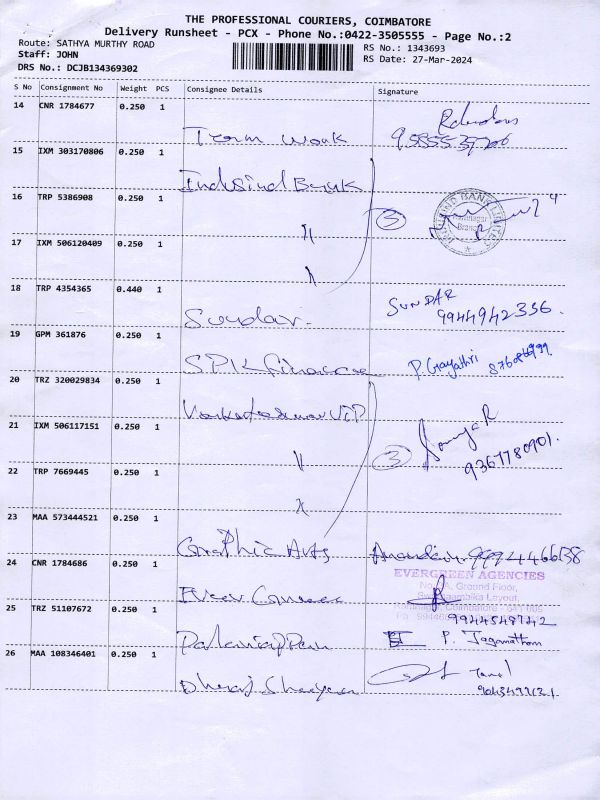 THE PROFESSIONAL COURIERS, COIMBATORE
Delivery Runsheet - PCX - Phone No.:0422-3505555 - Page No.:2
Route: SATHYA MURTHY ROAD
RS No.: 1343693
Staff: JOHN
RS Date: 27-Mar-2024
DRS No.: DCJB134369302
S No Consignment No Weight PCS Consignee Details Signature
14 CNR 1784677 0.250 1
Team Work
15 IXM 303170806 0.250 1
IndusInd Bank
16 TRP 5386908 0.250 1
3
17 IXM 506120409 0.250 1
18 TRP 4354365 0.440 1
Sundar. SUNDAR
9944942336.
19 GPM 361876 0.250 1
SPK Finance P. Gayathri
20 TRZ 320029834 0.250 1
21 IXM 506117151 0.250 1
3 9367780901.
22 TRP 7669445 0.250 1
23 MAA 573444521 0.250 1
Graphic Arts
24 CNR 1784686 0.250 1
EVERGREEN AGENCIES
Ground Floor,
Layout,
Coimbatore
25 TRZ 51107672 0.250 1
9944548742
P. Jaganathan
26 MAA 108346401 0.250 1
Dheeraj